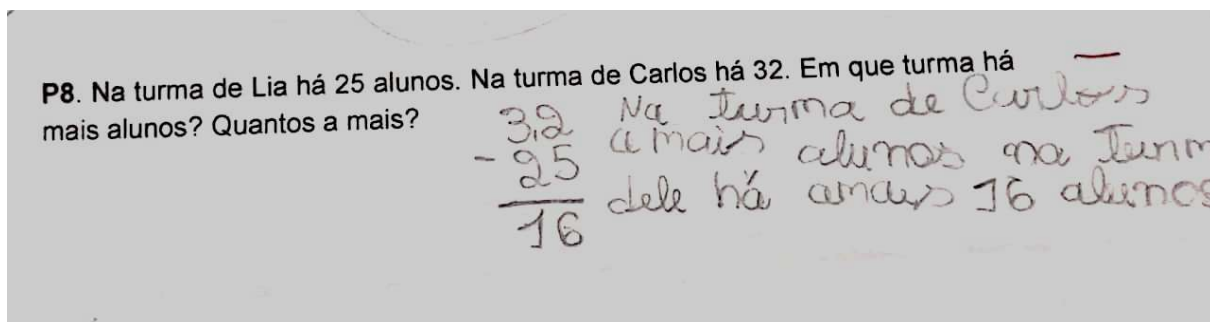 P8. Na turma de Lia há 25 alunos. Na turma de Carlos há 32. Em que turma há
mais alunos? Quantos a mais?
3,2
- 25
16
Na turma de Carlos
a mais alunos na Turm
dele há amais 16 alunos